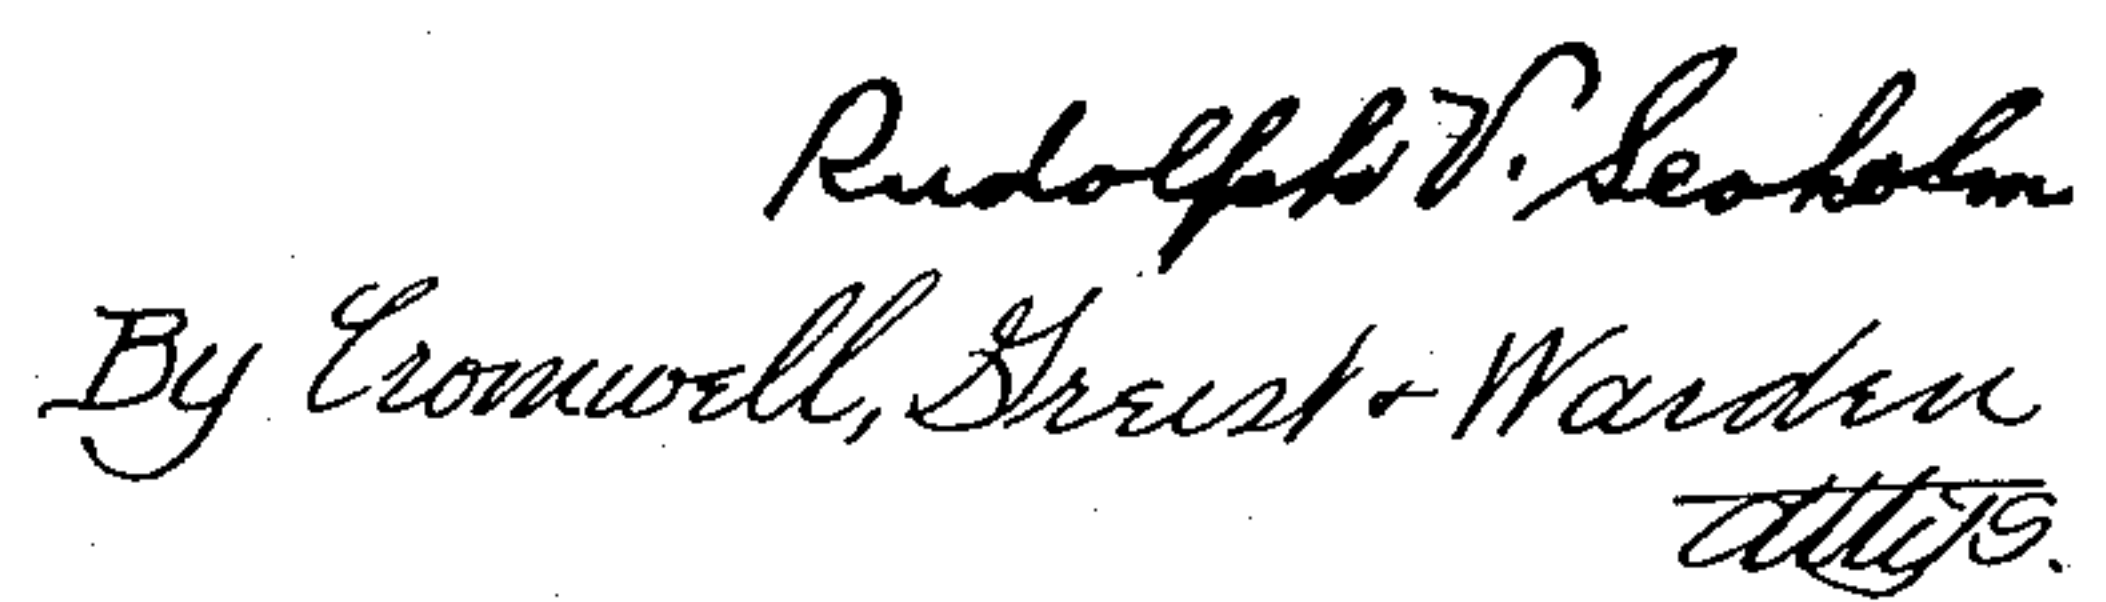 Rudolph V. Seaholm
By Cromwell, Greist + Warden
Attys.